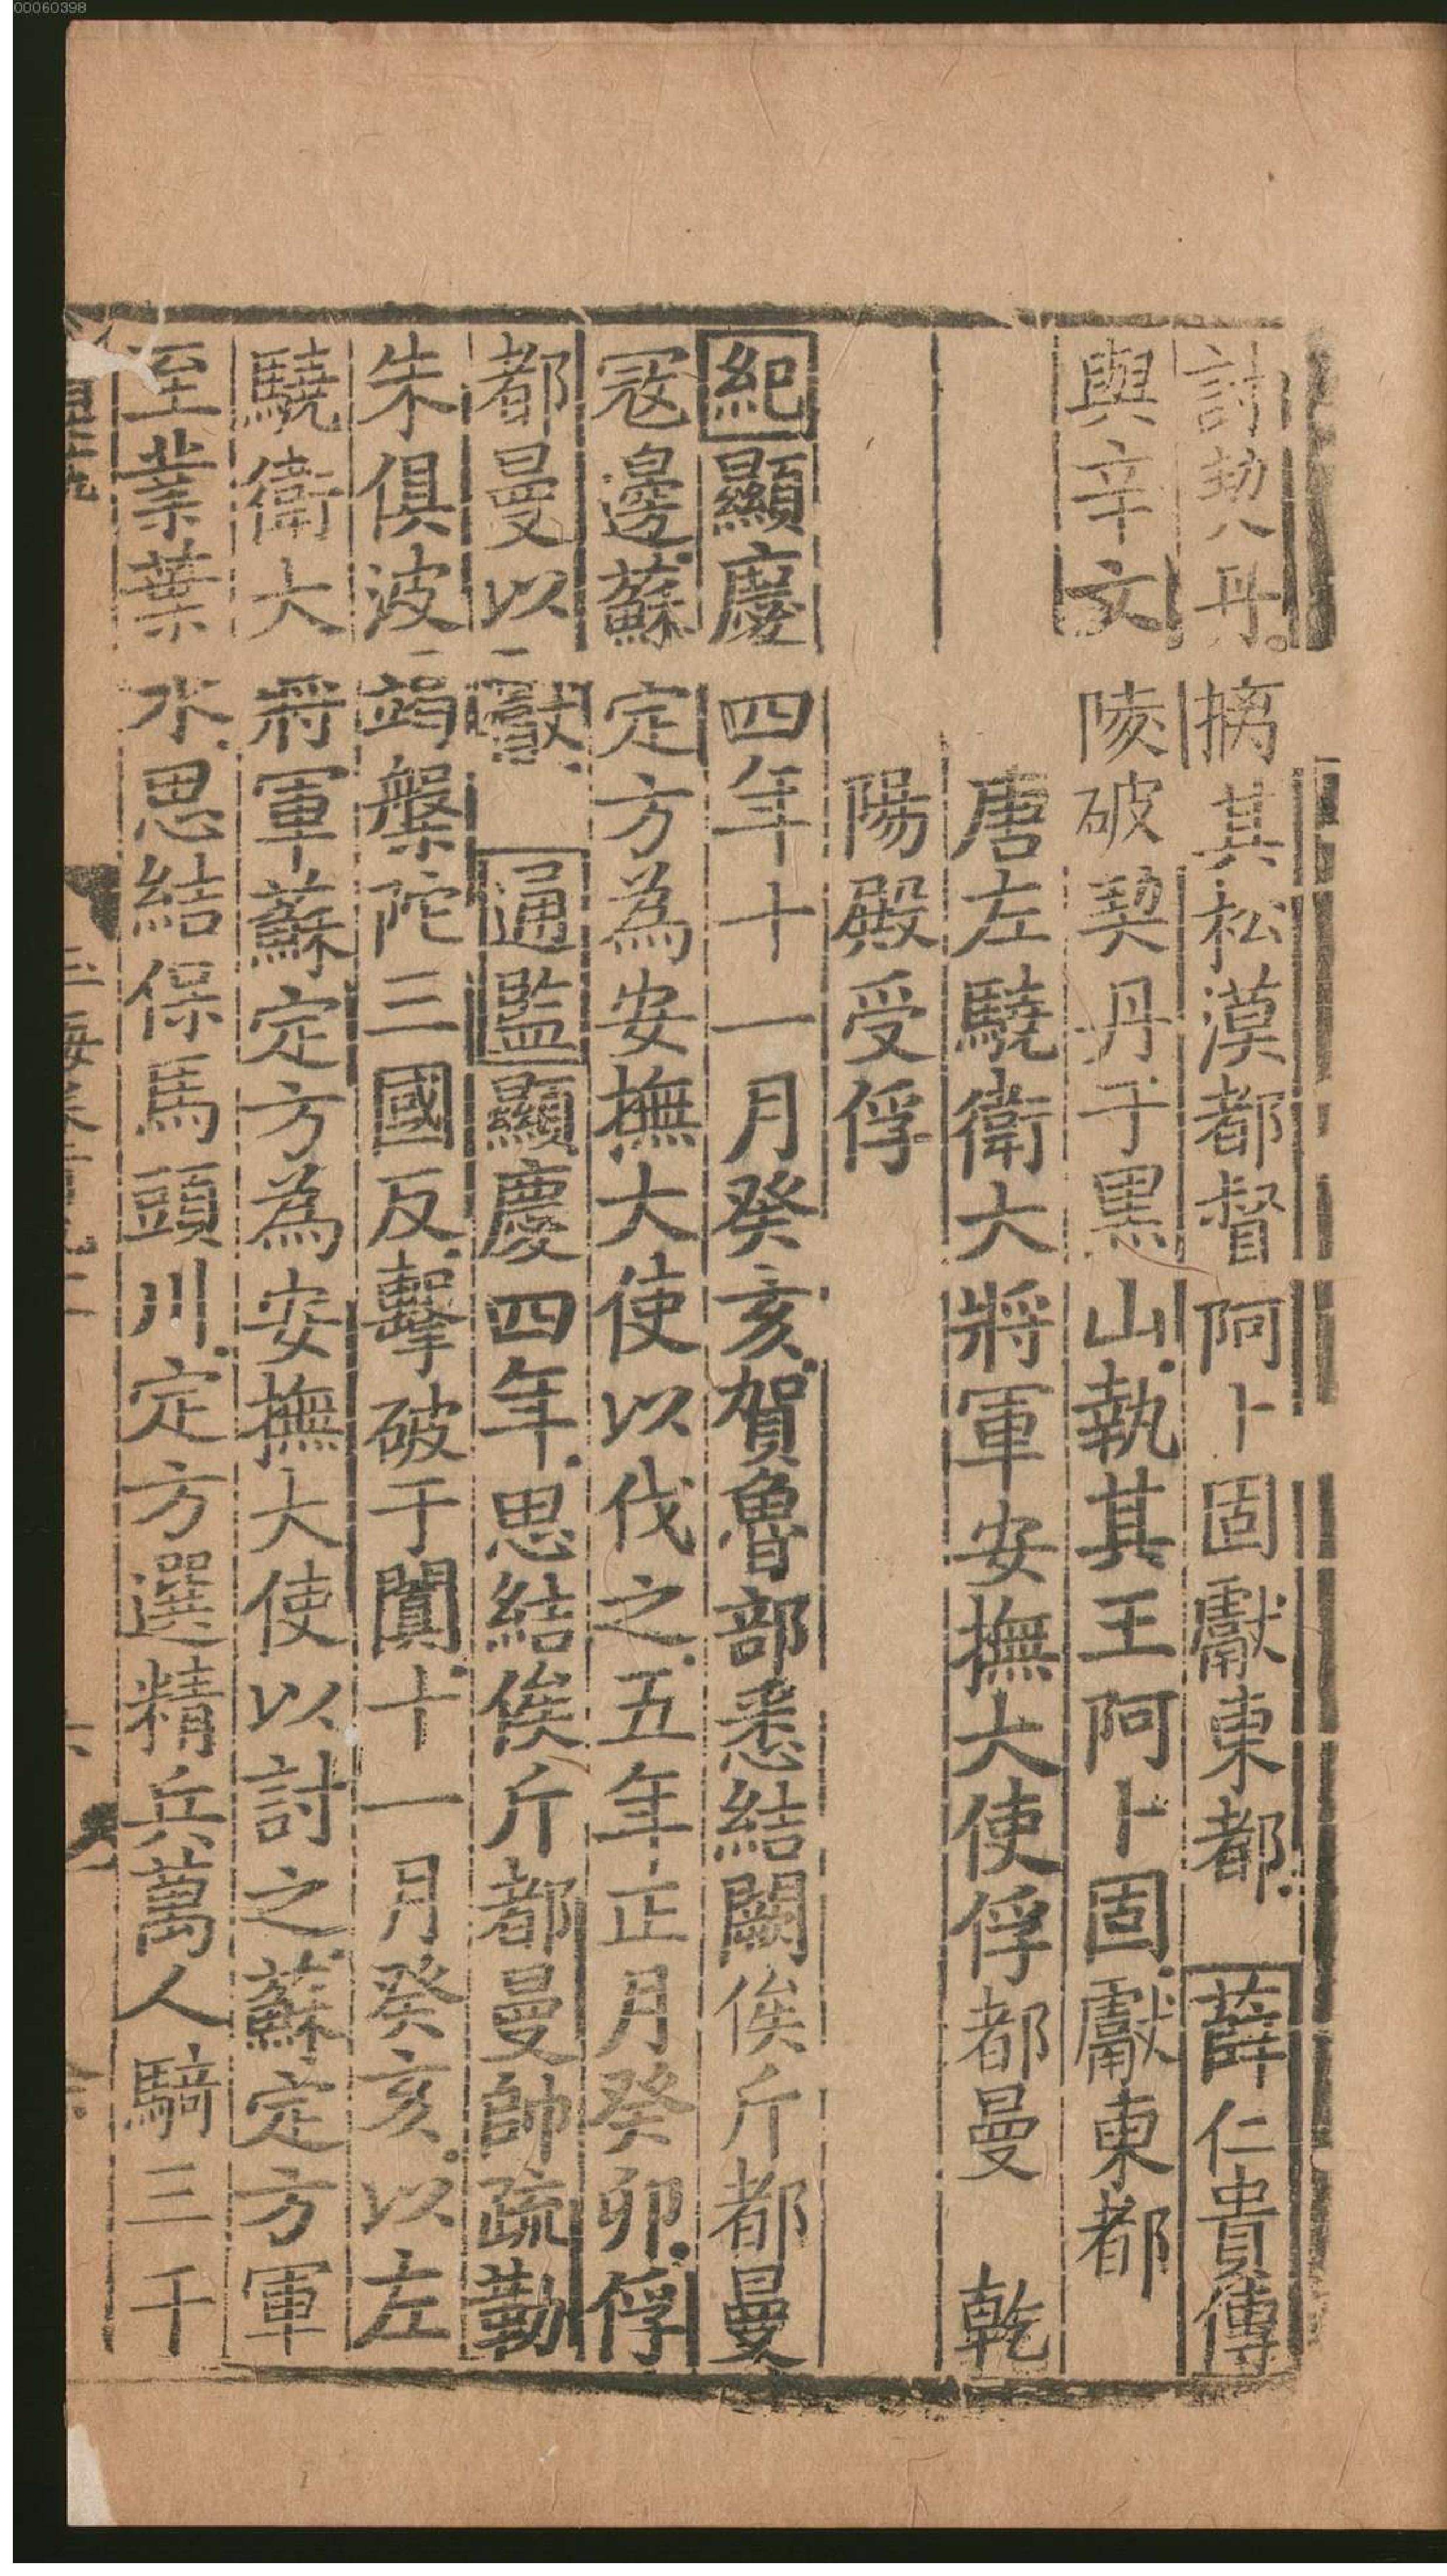 00060398
討契丹擒其松漠都督阿卜固獻東都薛仁貴傳
與辛文陵破契丹于黑山執其王阿卜固獻東都
唐左驍衛大將軍安撫大使俘都曼 乾
陽殿受俘
紀顯慶四年十一月癸亥賀魯部悉結闕俟斤都曼
寇邊蘇定方為安撫大使以伐之五年正月癸卯俘
都曼以獻 通監顯慶四年思結俟斤都曼帥疏勒
朱俱波謁槃陀三國反擊破于闐十一月癸亥以左
驍衛大將軍蘇定方為安撫大使以討之蘇定方軍
至業葉水思結保馬頭川定方選精兵萬人騎三千